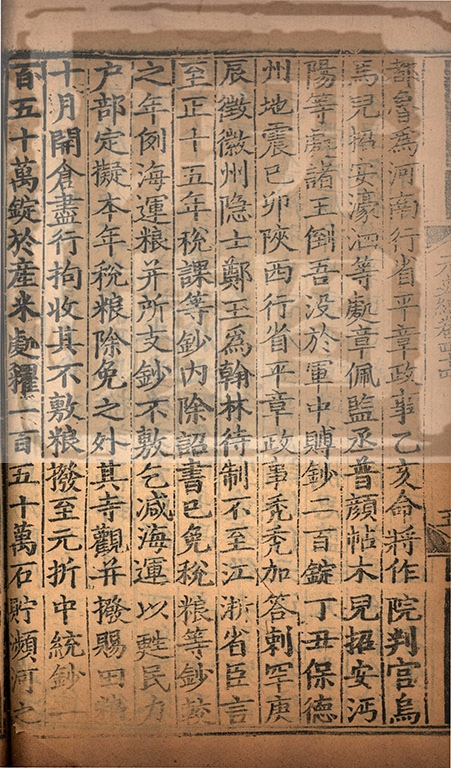 都魯為河南行省平章政事乙亥命將作院判官烏
馬兒招安濠泗等處章佩監丞普顏帖木兒招安沔
陽等處諸王倒吾没於軍中賻鈔二百錠丁丑保德
州地震己卯陝西行省平章政事秃秃加答剌罕庚
辰徵徽州隐士鄭玉爲翰林待制不至江浙省臣言
至正十五年稅課等鈔内除詔書已免稅粮等鈔較
之年例海運粮并所支鈔不敷乞减海運以甦民力
户部定擬本年稅粮除免之外其寺觀并撥賜田粮
十月開倉盡行拘收其不敷粮撥至元折中統鈔一
百五十萬錠於産米處糴一百五十萬石貯瀕河之